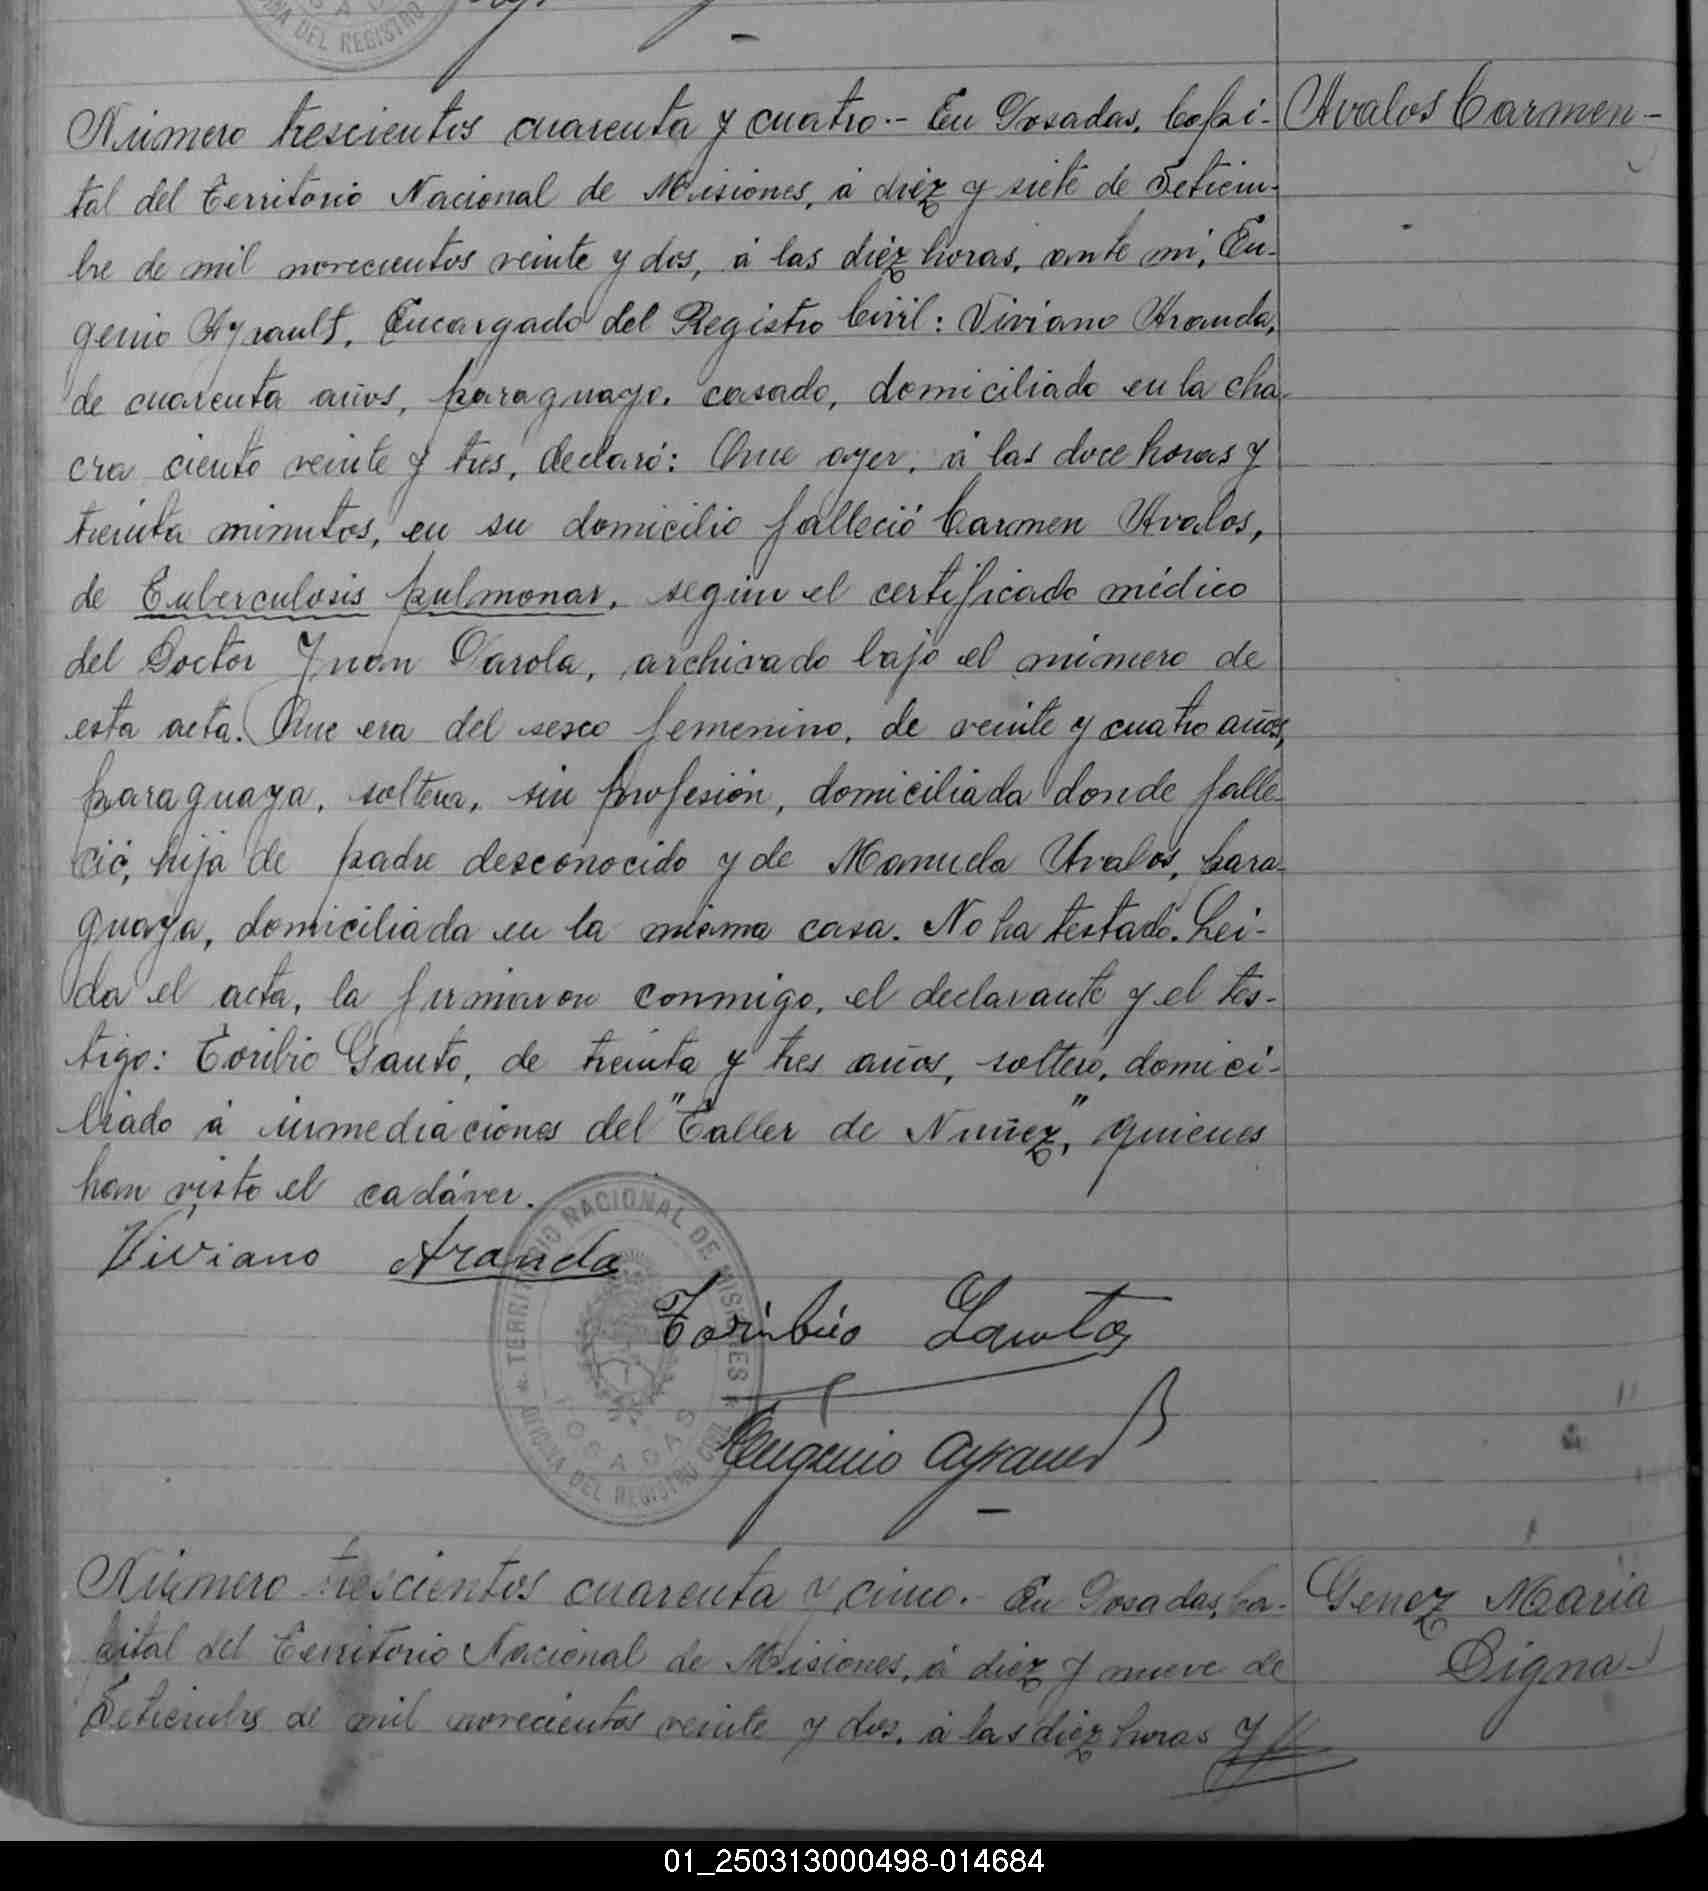 DEL REGISTRO
Número trescientos cuarenta y cuatro.- En Posadas, Capi-
Avalos Carmen-
tal del Territorio Nacional de Misiones, á diéz y siete de Setiem-
bre de mil novecientos veinte y dos, á las diéz horas, ante mi, Eu-
genio Ayrault, Encargado del Registro Civil: Viviano Aranda,
de cuarenta años, paraguayo, casado, domiciliado en la cha-
cra ciento veinte y tres, declaró: Que ayer, á las doce horas y
treinta minutos, en su domicilio falleció Carmen Avalos,
de Tuberculosis pulmonar, según el certificado médico
del Doctor Juan Parola, archivado bajo el número de
esta acta. Que era del sexo femenino, de veinte y cuatro años,
paraguaya, soltera, sin profesión, domiciliada donde falle-
ció, hija de padre desconocido y de Manuela Avalos, para-
guaya, domiciliada en la misma casa. No ha testado. Lei-
da el acta, la firmaron conmigo, el declarante y el tes-
tigo: Toribio Gauto, de treinta y tres años, soltero, domici-
liado á inmediaciones del "Taller de Nuñez", quienes
han visto el cadáver.
Viviano Aranda
Toribio Gauto
Eugenio Ayrault
TERRITORIO NACIONAL DE MISIONES
POSADAS
OFICINA DEL REGISTRO CIVIL
Número trescientos cuarenta y cinco.- En Posadas, Ca-
Genez Maria
pital del Territorio Nacional de Misiones, á diéz y nueve de
Digna-
Setiembre de mil novecientos veinte y dos, á las diéz horas y
01_250313000498-014684